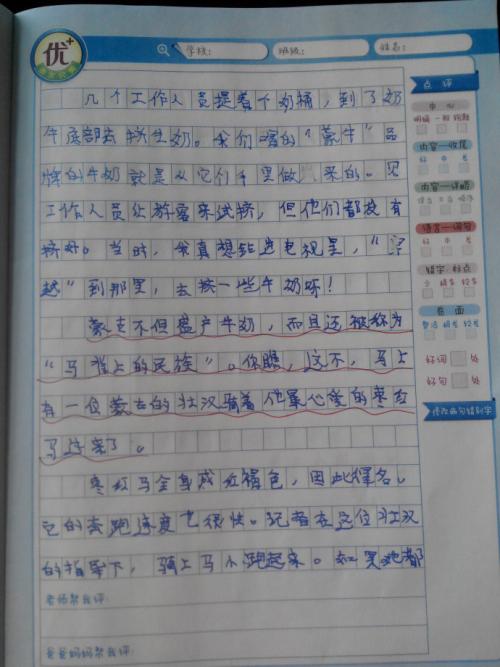 优+
学校:
班级:
姓名:
几个工作人员提着个奶桶，到了奶
牛底部去挤生奶。我们喝的“蒙牛”品
牌的牛奶就是从它们手里做 来的。见
工作人员让游客来试挤，但他们都没有
挤好。当时，我真想钻进电视里，“穿
越”到那里，去挤一些牛奶呀！
蒙古不但盛产牛奶，而且还被称为
“马背上的民族”。你瞧，这不，马上
有一位蒙古的壮汉骑着他最心爱的枣红
马过来了。
枣红马全身成红褐色，因此得名。
它的奔跑速度也很快。记者在这位壮汉
的指导下，骑上马小跑起来。如果她都
老师帮我评:
爸爸妈妈帮我评:
点评
中心
明确 一般 跑题
内容一收尾
好 中 差
内容一详略
语言一词句
好 中 差
错字 标点
少 稍多 较多
卷面
整洁 稍差 较差
好词 处
好句 处
修改病句错别字